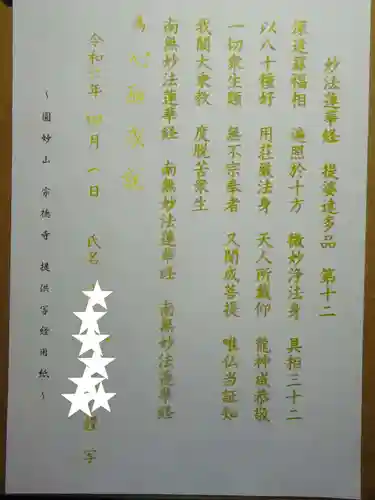 妙法蓮華経 提婆達多品 第十二
深達罪福相 遍照於十方 微妙浄法身 具相三十二
以八十種好 用荘厳法身 天人所戴仰 龍神咸恭敬
一切衆生類 無不宗奉者 又聞成菩提 唯仏当証知
我闡大乗教 度脱苦衆生
南無妙法蓮華経 南無妙法蓮華経 南無妙法蓮華経
令和二年 四月 一日 氏名 謹写
~ 圓妙山 宗橋寺 提供写経用紙 ~